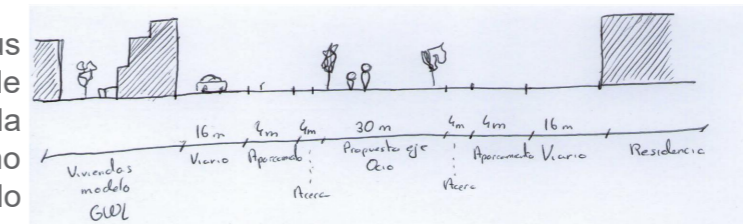 us
de
da
no
do
16 m 4m 4m 30 m 4m 4m 16 m
Viviendas modelo GWL
Viario
Aparcando
Acera
Propuesta eje Ocio
Acera
Aparcamento
Viario
Residencia